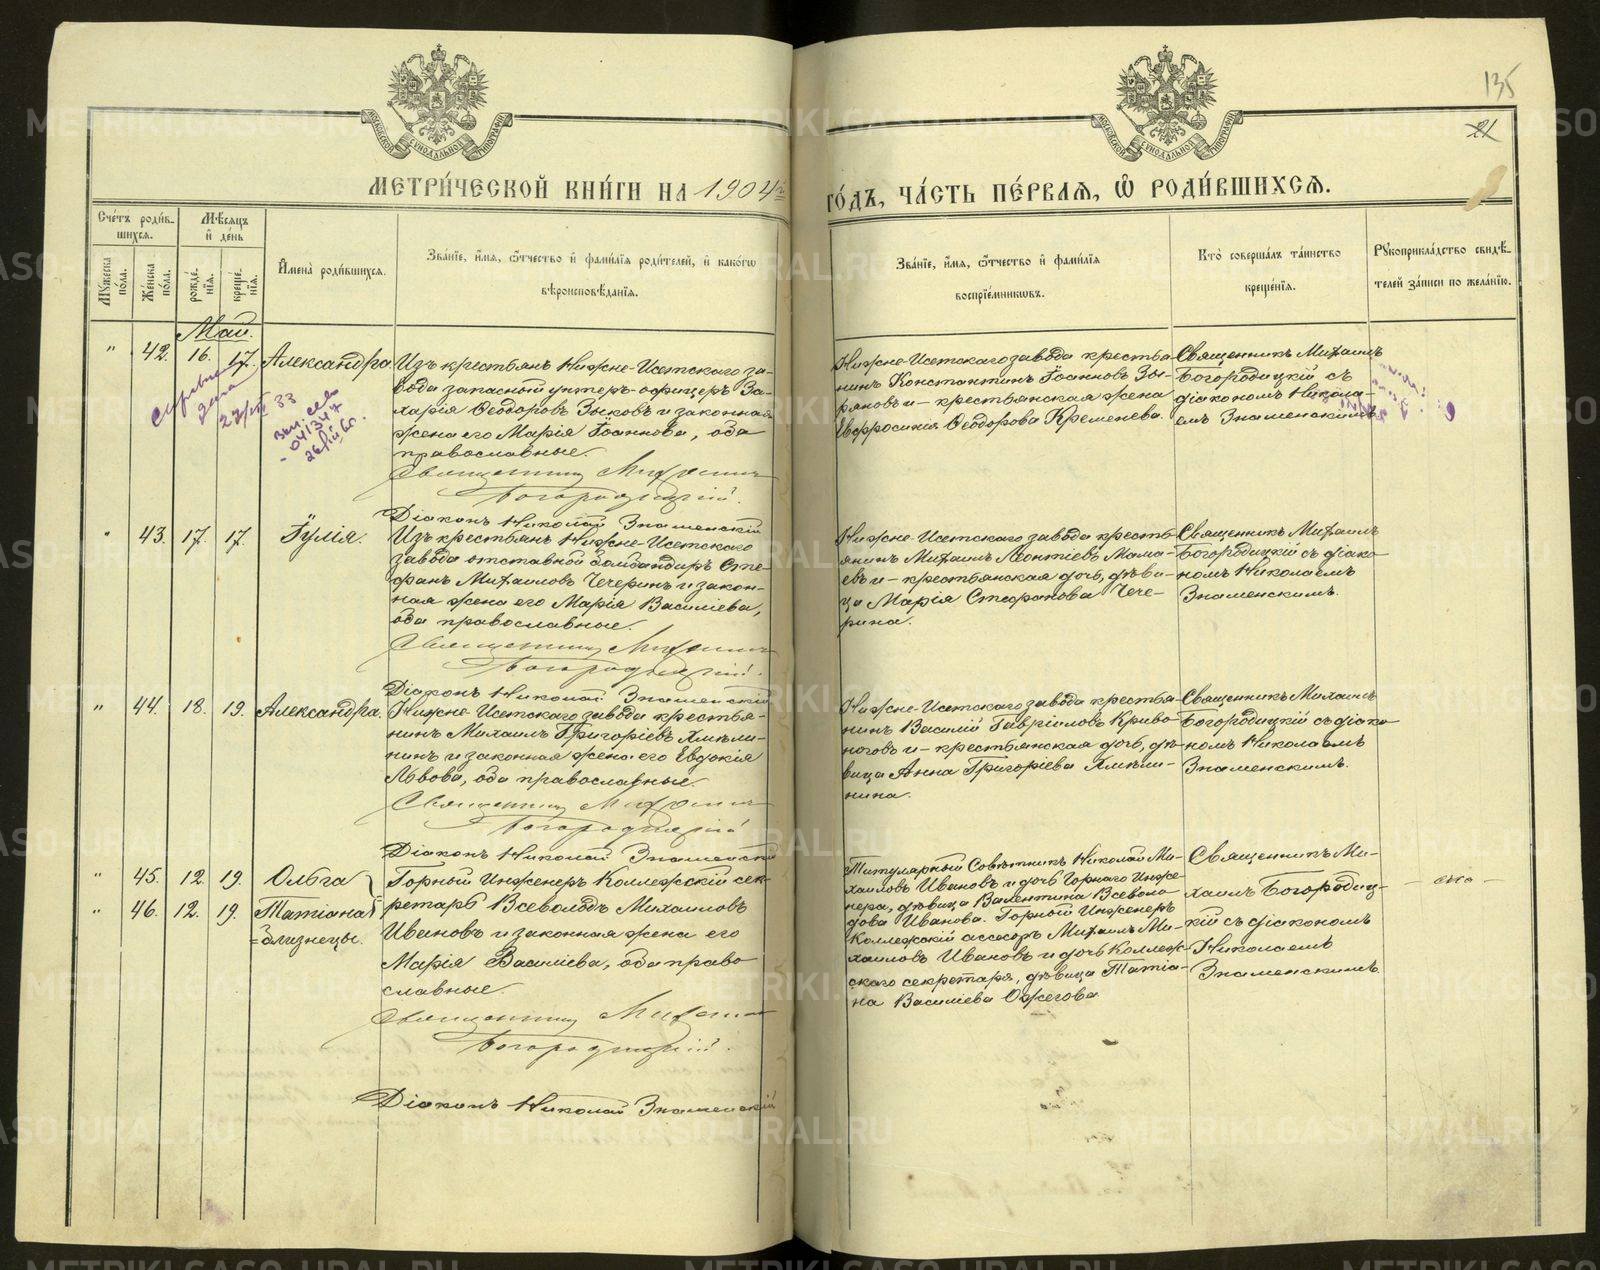 135
21
МОСКОВСКОЙ СѴНОДАЛЬНОЙ ТИПОГРАФІИ
МОСКОВСКОЙ СѴНОДАЛЬНОЙ ТИПОГРАФІИ
МЕТРИ́ЧЕСКОЙ КНИ́ГИ НА 1904й
ГО́ДЪ, ЧА́СТЬ ПЕ́РВАЯ, Ѽ РОДИ́ВШИХСЯ.
Сче́тъ роди́вшихся.
Мꙋ́жеска по́ла.
Же́нска по́ла.
Мѣ́сяцъ и҆ де́нь
рожде́нїя.
креще́нїя.
И҆мена̀ роди́вшихся.
Зва́нїе, и҆́мя, ѻ҆́тчество и҆ фами́лїя роди́телей, и҆ како́гѡ
вѣроисповѣ́данїя.
Зва́нїе, и҆́мя, ѻ҆́тчество и҆ фами́лїя
воспрїе́мникѡвъ.
Кто̀ соверша́лъ та́инство
креще́нїя.
Рꙋкоприкла́дство свидѣ́-
телей за́писи по жела́нїю.
Май.
" 42. 16. 17. Александра
Изъ крестьянъ Нижне-Исетскаго за-
вода запасный унтеръ-офицеръ За-
харія Ѳеодоровъ Зыковъ и законная
жена его Марія Іоаннова, оба
православные.
Священникъ Михаилъ
Богородицкій.
Діаконъ Николай Знаменскій
Нижне-Исетскаго завода крестья-
нинъ Константинъ Іоанновъ Зы-
ряновъ и – крестьянская жена
Евфросинія Ѳеодорова Кременева.
Священникъ Михаилъ
Богородицкій съ
діакономъ Никола-
емъ Знаменскимъ
33
26/III 60.
" 43. 17. 17. Іулія.
Изъ крестьянъ Нижне-Исетскаго
завода отставной бомбандиръ Сте-
фанъ Михаиловъ Чечеринъ и закон-
ная жена его Марія Василіева,
оба православные.
Священникъ Михаилъ
Богородицкій.
Діаконъ Николай Знаменскій
Нижне-Исетскаго завода кресть-
янинъ Михаилъ Леонтіевъ Мама-
евъ и – крестьянская дочь, дѣви-
ца Марія Стефанова Чече-
рина.
Священникъ Михаилъ
Богородицкій съ діако-
номъ Николаемъ
Знаменскимъ.
" 44. 18. 19. Александра.
Нижне-Исетскаго завода крестья-
нинъ Михаилъ Григоріевъ Хмѣли-
нинъ и законная жена его Евдокія
Львова, оба православные.
Священникъ Михаилъ
Богородицкій
Діаконъ Николай Знаменскій
Нижне-Исетскаго завода крестья-
нинъ Василій Гавріиловъ Криво-
ноговъ и – крестьянская дочь, дѣ-
вица Анна Григоріева Хмѣли-
нина.
Священникъ Михаилъ
Богородицкій съ діако-
номъ Николаемъ
Знаменскимъ.
" 45. 12. 19. Ольга
" 46. 12. 19. Татіана
= близнецы.
Горный Инженеръ Коллежскій сек-
ретарь Всеволодъ Михаиловъ
Ивановъ и законная жена его
Марія Василіева, оба право-
славные.
Священникъ Михаилъ
Богородицкій.
Діаконъ Николай Знаменскій
Титулярный Совѣтникъ Николай Ми-
хаиловъ Ивановъ и дочь Горнаго Инже-
нера, дѣвица Валентина Всеволо-
дова Иванова. Горный Инженеръ
Коллежскій ассесоръ Михаилъ Ми-
хаиловъ Ивановъ и дочь Коллеж-
скаго секретаря, дѣвица Татіа-
на Василіева Ожегова
Священникъ Ми-
хаилъ Богородиц-
кій съ діакономъ
Николаемъ
Знаменскимъ.
METRIKI.GASO-URAL.RU